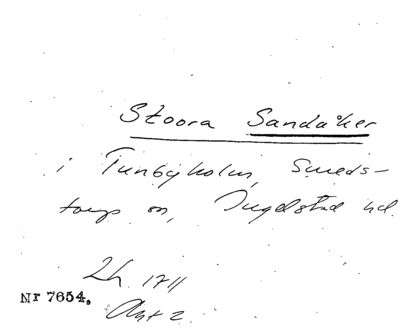 Stoora Sandåker
i Tunbyholm, Smeds-
torps sn, Ingelstad hd.
Lh. 1711
Akt 2
Nr 7654.